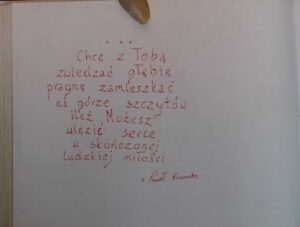 * * *
Chcę z Tobą
zwiedzać głębię
pragnę zamieszkać
na górze szczytów
ileż Możesz
więzić serce
w skończonej
ludzkiej miłości